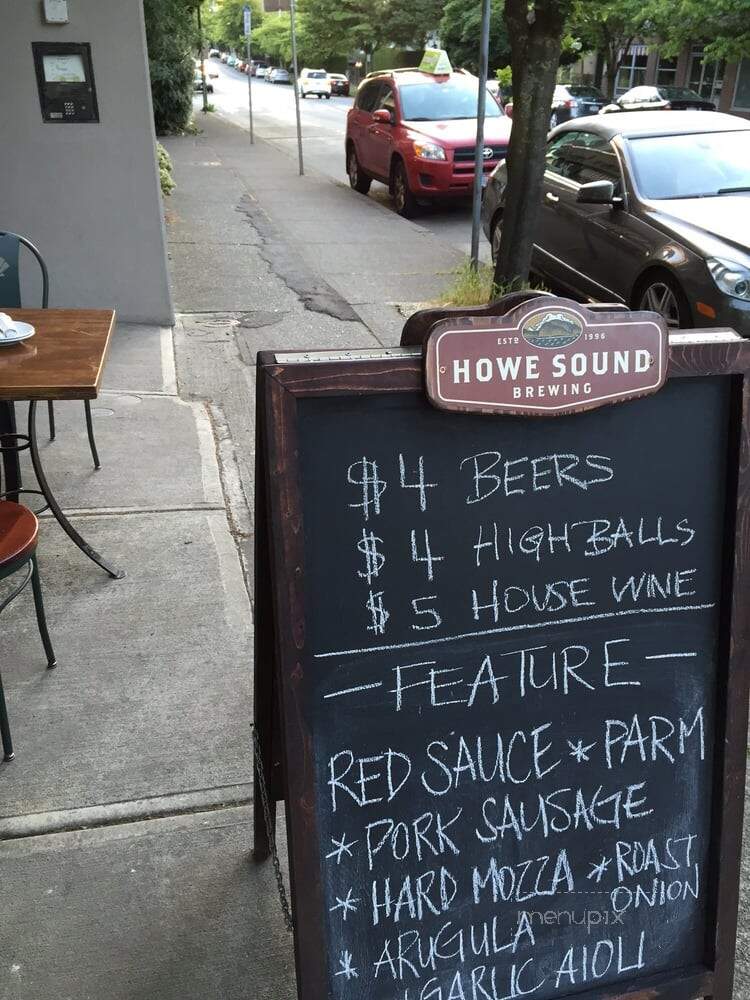 ESTD 1996
HOWE SOUND
BREWING
$4 BEERS
$4 HIGHBALLS
$5 HOUSE WINE
— FEATURE —
RED SAUCE * PARM
* PORK SAUSAGE
* HARD MOZZA * ROAST
ONION
* ARUGULA
GARLIC AIOLI
menupix